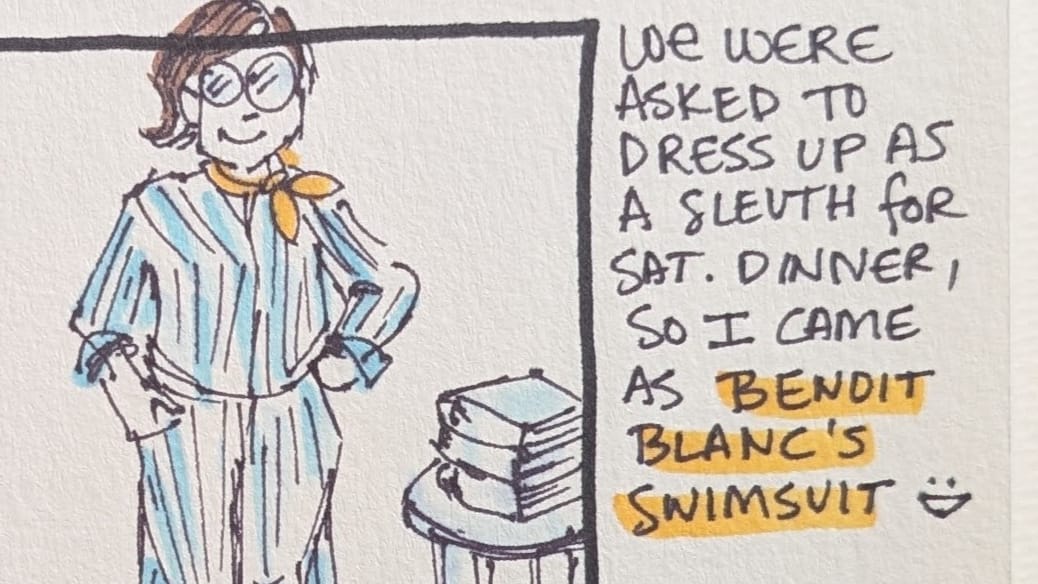 WE WERE
ASKED TO
DRESS UP AS
A SLEUTH FOR
SAT. DINNER,
SO I CAME
AS BENOIT
BLANC'S
SWIMSUIT